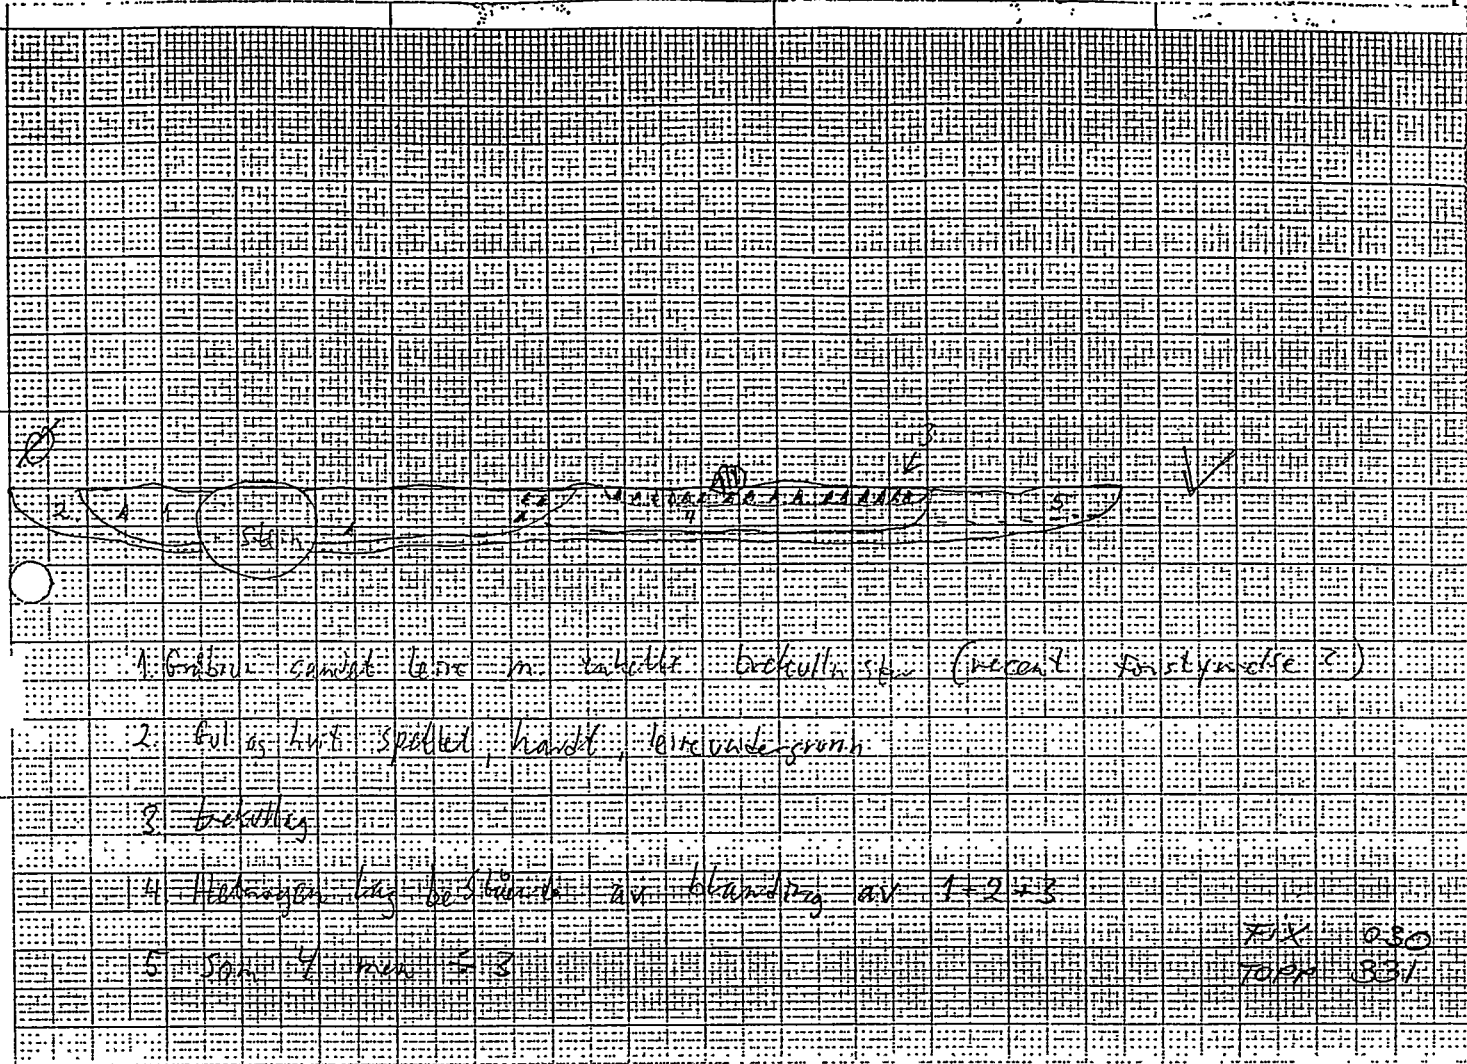 Ø
3
V
2. 1 Stein 4 5
1. Gråbrun sandet leire m. enkelte trekullbiter (recent forstyrrelse?)
2. Gul og hvit spettet, hardt, leireundergrunn
3. trekullag
4 Hetrogen lag bestående av blanding av 1+2+3
5 Som 4 men ÷ 3
FIX 030
TOPP 331